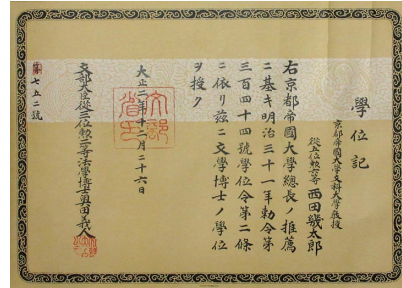 學位記
京都帝國大學文科大學教授
從五位勲六等 西田幾太郎
右京都帝國大學總長ノ推薦
ニ基キ明治三十一年勅令第
三百四十四號學位令第二條
ニ依リ玆ニ文學博士ノ學位
ヲ授ク
大正二年十二月二十六日
文部省印
文部大臣從三位勲二等法學博士奧田義人
第七五二號